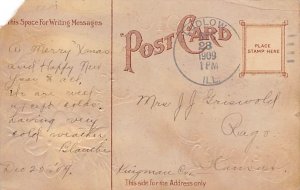 This Space For Writing Messages
POST CARD
LUDLOW
23
1909
1 PM
ILL.
PLACE
STAMP HERE
A Merry Xmas
and Happy New
Year to all.
We are well
except colds.
Having very
cold weather
Blanche
Dec 22 '09.
Mrs J J Griswold
Rago.
Kingman Co. Kansas.
This side for the Address only